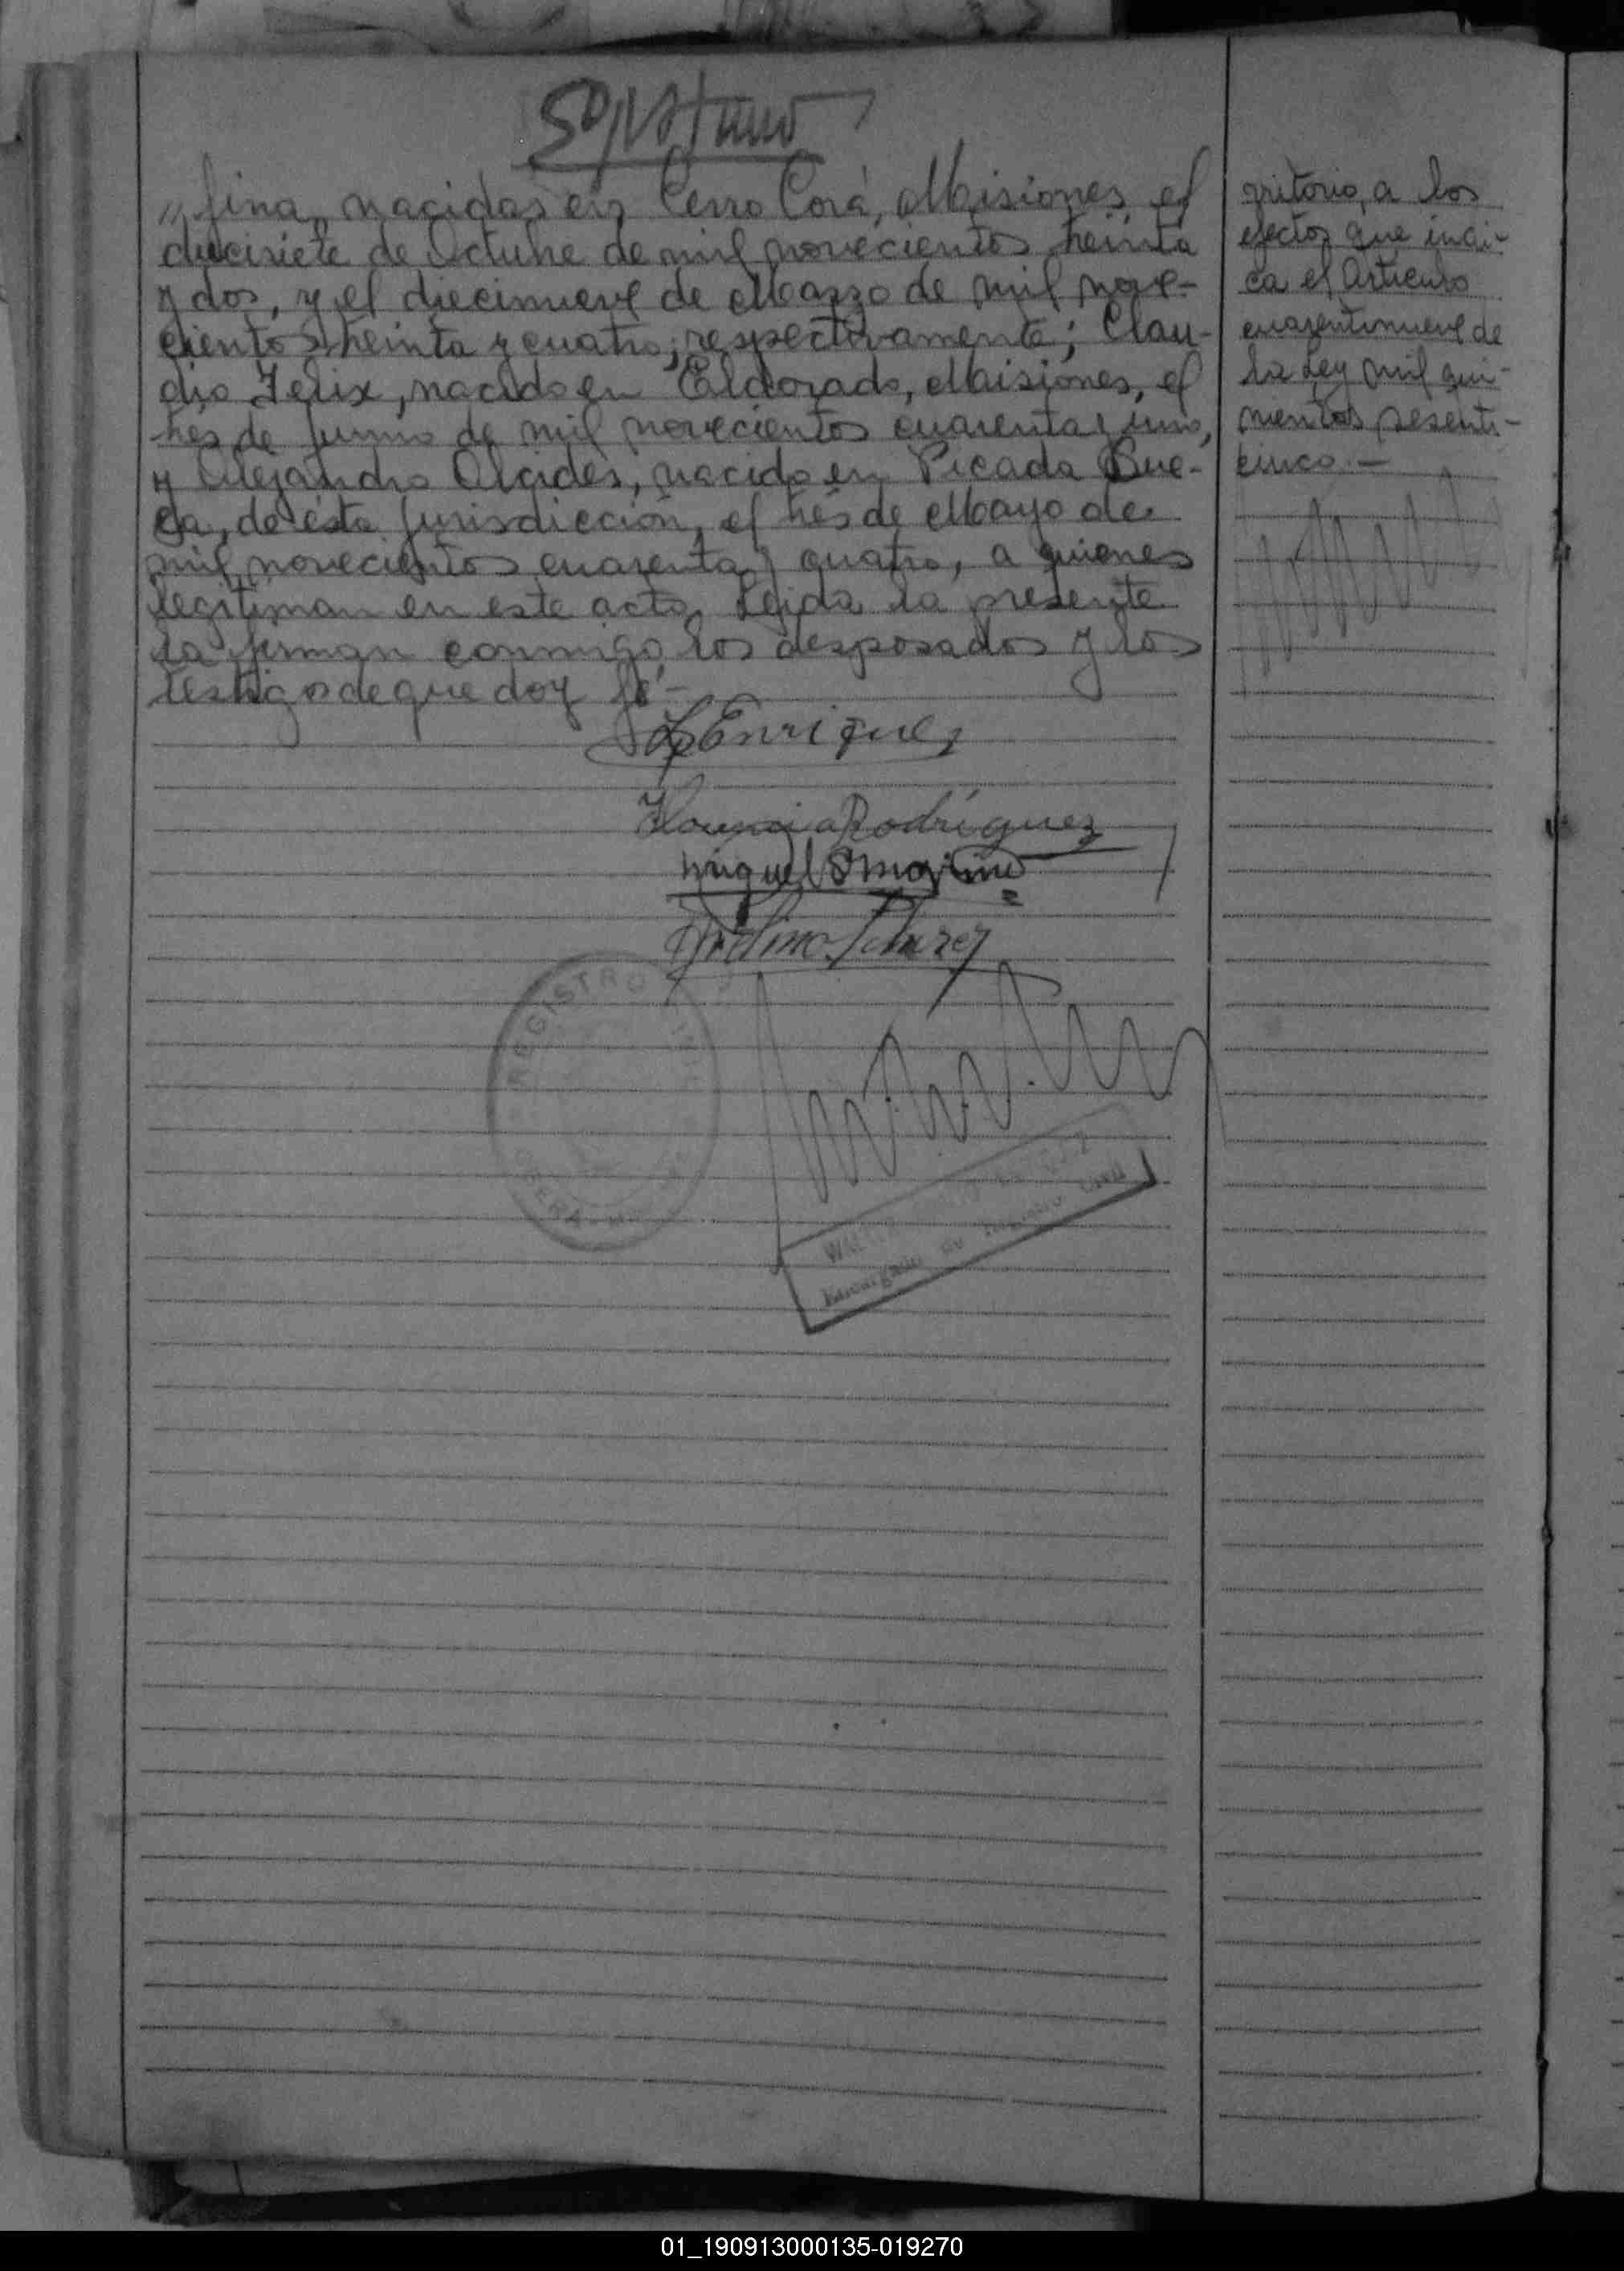 fina, nacidas en Cerro Corá, Misiones, el
diecisiete de Octubre de mil novecientos treinta
y dos, y el diecinueve de Marzo de mil nove-
cientos treinta y cuatro, respectivamente; Clau-
dio Felix, nacido en Eldorado, Misiones, el
tres de Junio de mil novecientos cuarenta y uno,
y Alejandro Alcides, nacido en Picada
de ésta jurisdicción, el trés de Mayo de
mil novecientos cuarenta y cuatro, a quienes
legitiman en este acto. Leida la presente
la firman conmigo los desposados y los
testigos de que doy fé.-
Enriquez
Rodríguez
Miguel
REGISTRO
Encargado Registro Civil
rritorio, a los
efectos que indi-
ca el Articulo
cuarentinueve de
la Ley mil qui-
nientos sesenti-
cinco.-
01_190913000135-019270